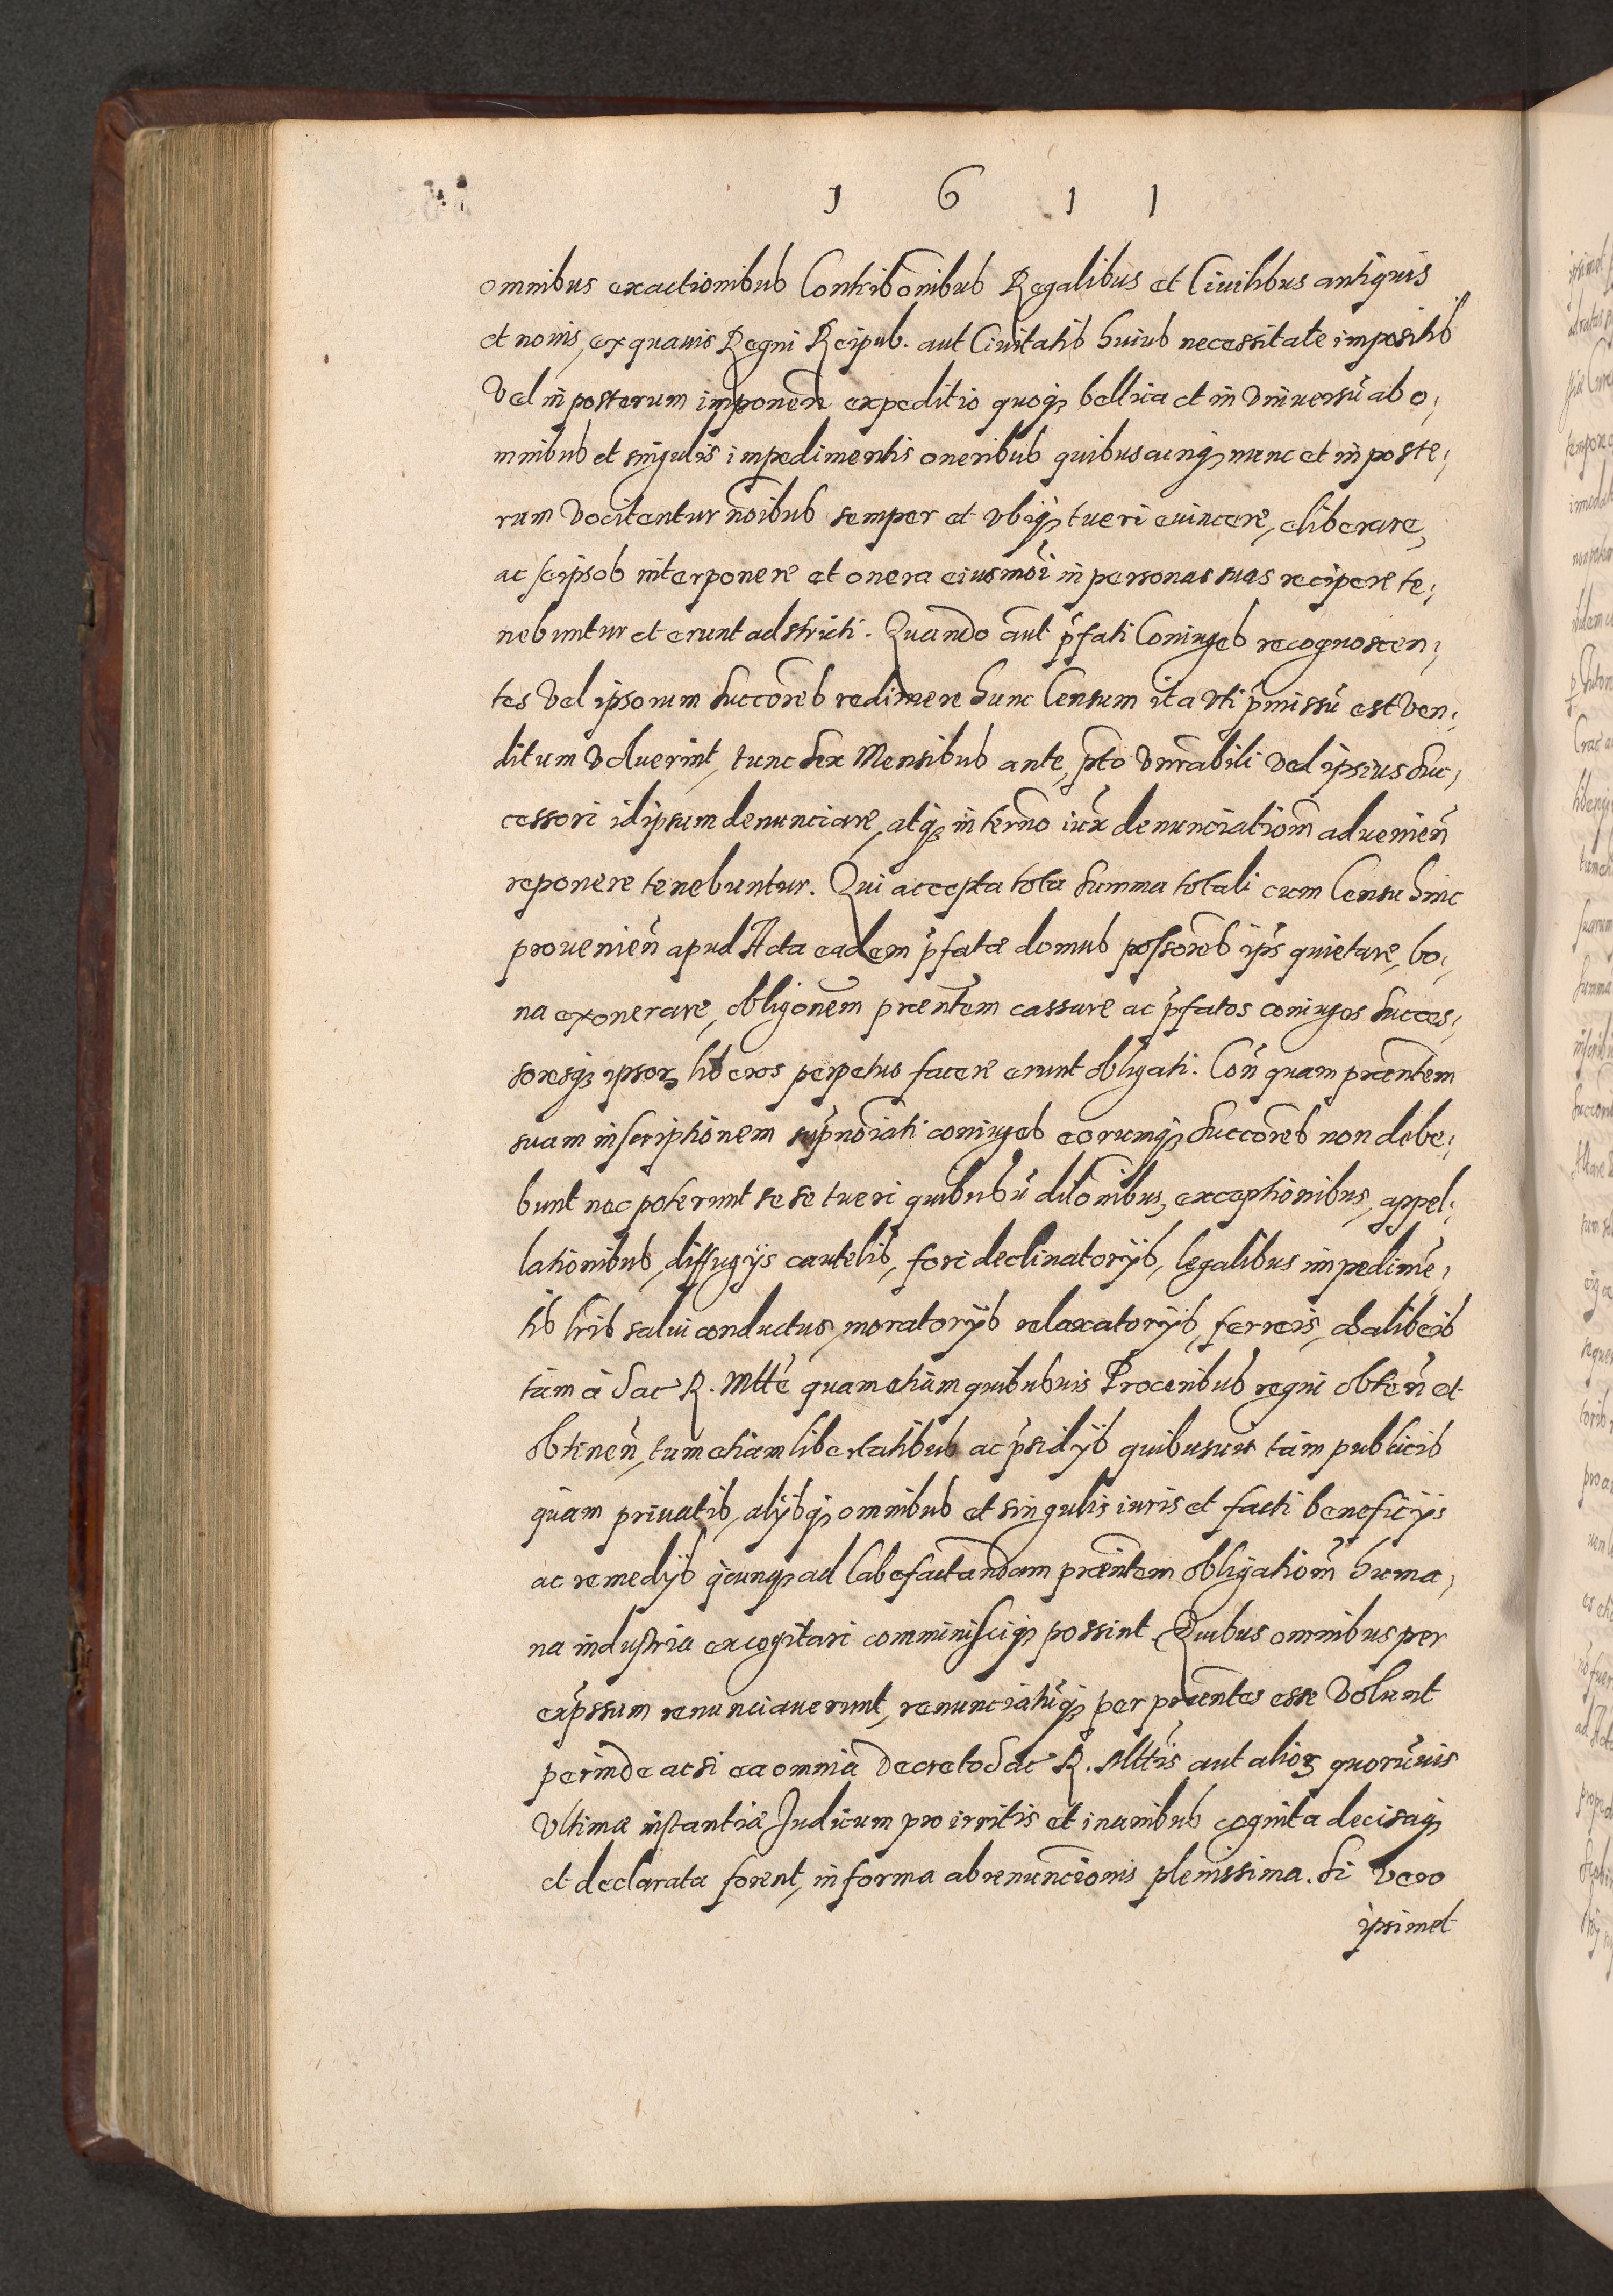 1 6 1 1
omnibus exactionibus Contribōnibus Regalibus et Ciuilibus antiquis
et nouis, ex quauis Regni Reipub. aut Ciuitatis huius necessitate impositis
Vel in posterum imponeñ expeditio quoq3 bellica et in vniuersū ab o,
mnibus et singulis impedimentis oneribus quibuscunq3 nunc et in poste,
rum vocitentur nōibus semper et vbiq3 tueri euincere, eliberare,
ac seipsos interponere et onera eiusmōi in personas suas recipere te,
nebuntur et erunt adstricti. Quando aūt p̄fati Coniuges recognoscen,
tes vel ipsorum Succōres redimere hunc Censum ita vti p̄missū est ven,
ditum voluerint, tunc sex Mensibus ante, p̄to vnrābili vel ipsius Suc,
cessori idipsum denunciare, atq3 in termo iux̄ denunciatiom̄ advenieñ
reponere tenebuntur. Qui accepta tota summa totali cum Censu hinc
provenieñ apud Acta eadem p̄fatæ domus possōres ip̄s quietare, bo,
na exonerare, obligōnem præntem cassare ac p̄fatos coniuges Succes,
soresq3 ipsor3 liberos perpetuo facere erunt obligati. Con̄ quam præntem
suam inscriptionem sup̄nōiati coniuges eorumq3 Succōres non debe,
bunt nec poterunt sese tueri quibusuū dilōnibus, exceptionibus, appel,
lationibus, diffugijs cautelis, fori declinatorijs, legalibus impedimē,
tis lris salui conductus, moratorijs relaxatorijs, ferreis, chalibeis
tam à Sac R. Mttē quam etiam quibusuis Proceribus regni obteñ et
obtineñ, tum etiam libertatibus ac p̄sidijs quibusuis tam publicis
quam priuatis, alijsq3 omnibus et singulis iuris et facti beneficijs
ac remedijs q̄cunq3 ad labefactandam præntem obligatiom̄ huma,
na industria excogitari comminisciq3 possint. Quibus omnibus per
exp̄ssum renunciauerunt, renunciatūq3 per præntes esse volunt
perinde ac si ea omnia Decreto Sac R. Mttis aut alior3 quorūuis
Vltimæ instantiæ Judicum pro irritis et inanibus cognita decisaq3
et declarata forent, in forma abrenuncīonis plenissima. Si vero
ipsimet